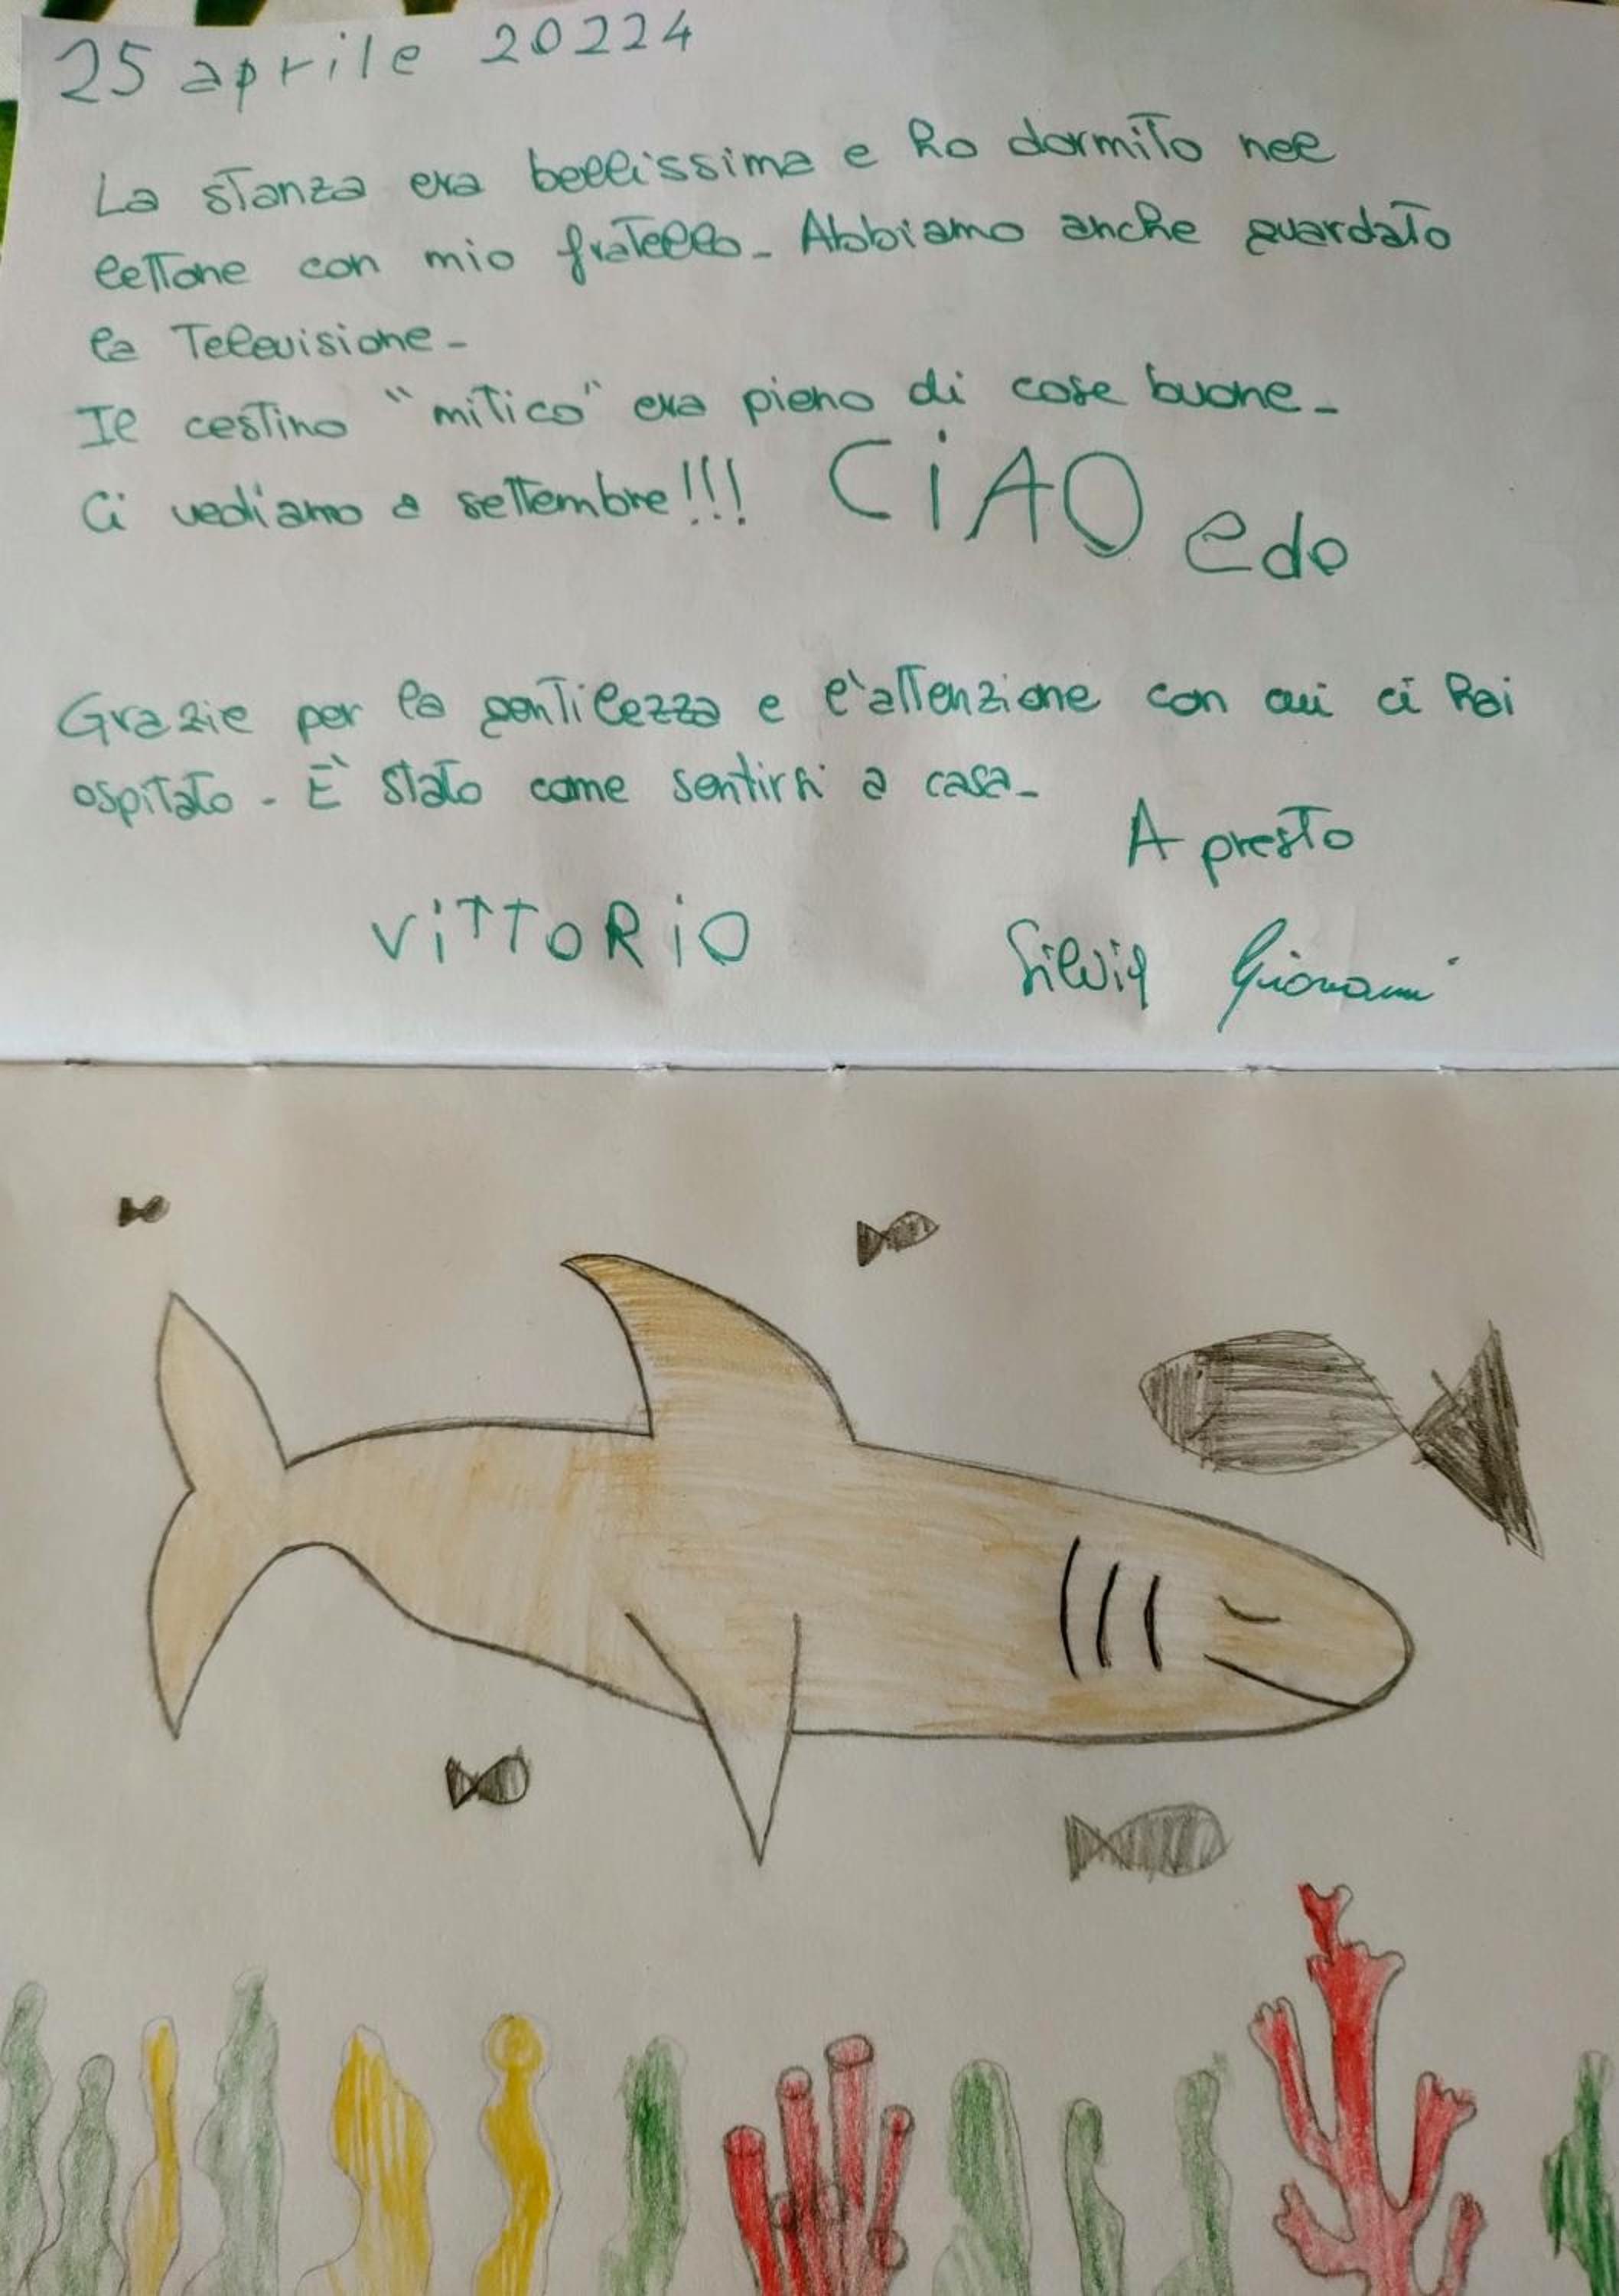 25 aprile 20224
La stanza era bellissima e ho dormito nel
lettone con mio fratello. Abbiamo anche guardato
la Televisione.
Il cestino "mitico" era pieno di cose buone.
Ci vediamo a settembre!!! CiAO edo
Grazie per la gentilezza e l'attenzione con cui ci hai
ospitato. È stato come sentirsi a casa.
A presto
ViTTORiO Silvia Giovanni